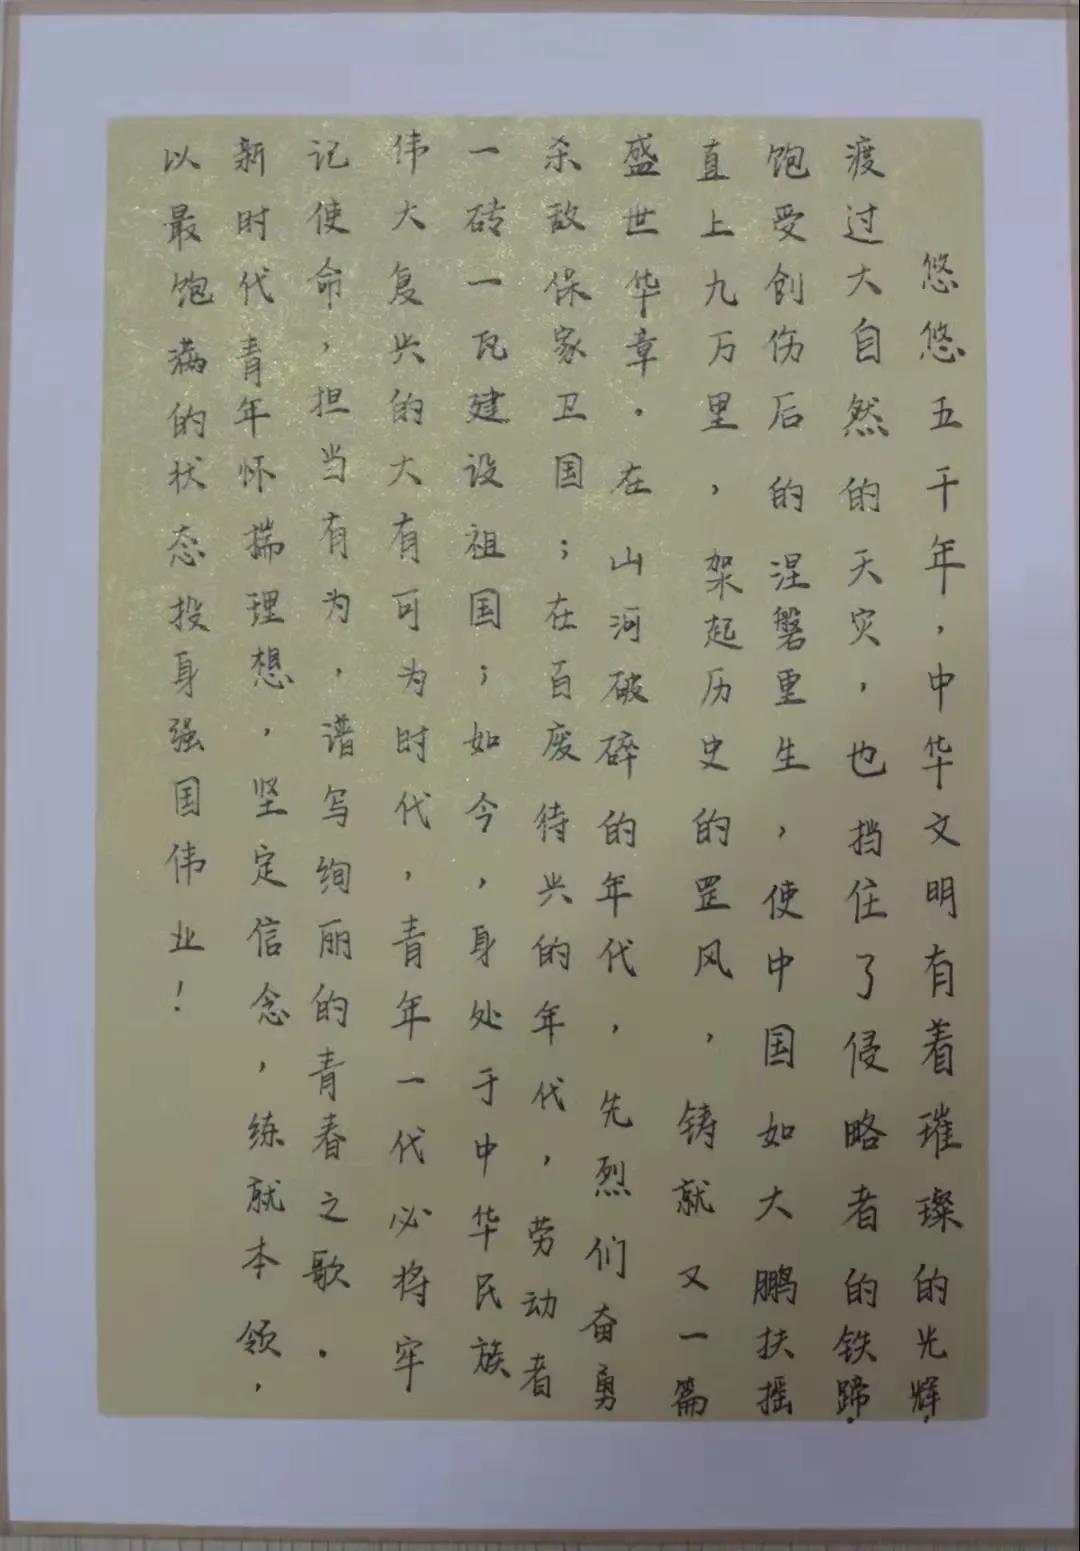 悠悠五千年，中华文明有着璀璨的光辉，
渡过大自然的天灾，也挡住了侵略者的铁蹄。
饱受创伤后的涅磐重生，使中国如大鹏扶摇
直上九万里，架起历史的罡风，铸就又一篇
盛世华章。在山河破碎的年代，先烈们奋勇
杀敌保家卫国；在百废待兴的年代，劳动者
一砖一瓦建设祖国；如今，身处于中华民族
伟大复兴的大有可为时代，青年一代必将牢
记使命，担当有为，谱写绚丽的青春之歌．
新时代青年怀揣理想，坚定信念，练就本领，
以最饱满的状态投身强国伟业！